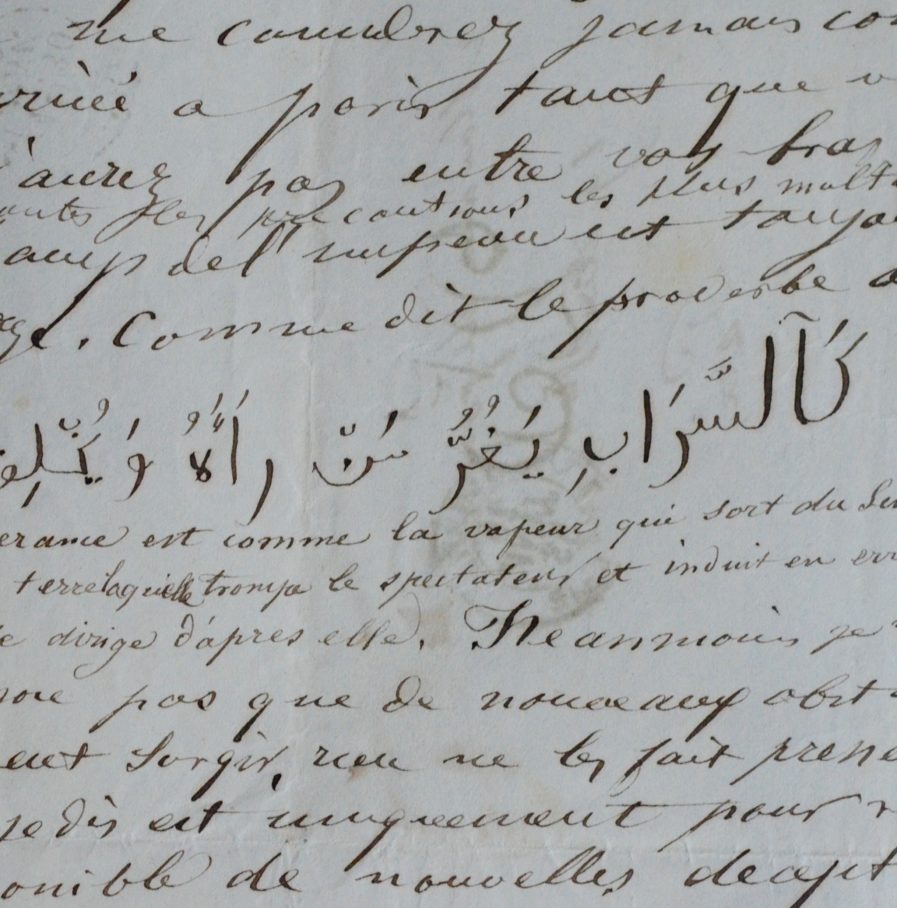 me coudrez jamais co
rivé a paris tant que v
'aurez pas entre vos bras
outes les precautions les plus mult
oup de l'impeau est toujou
. Comme dit le proverbe a
كَٱلسَّرَابِ يَغُرُّ مَنْ رَآهُ وَيُخْلِفُ
erance est comme la vapeur qui sort du Sei
terre laquelle trompe le spectateur et induit en err
e dirige d'apres elle. Neanmoins je
pas que de nouveaux obst
ent surgir, rien ne les fait prese
je dis est uniquement pour
onible de nouvelles decept